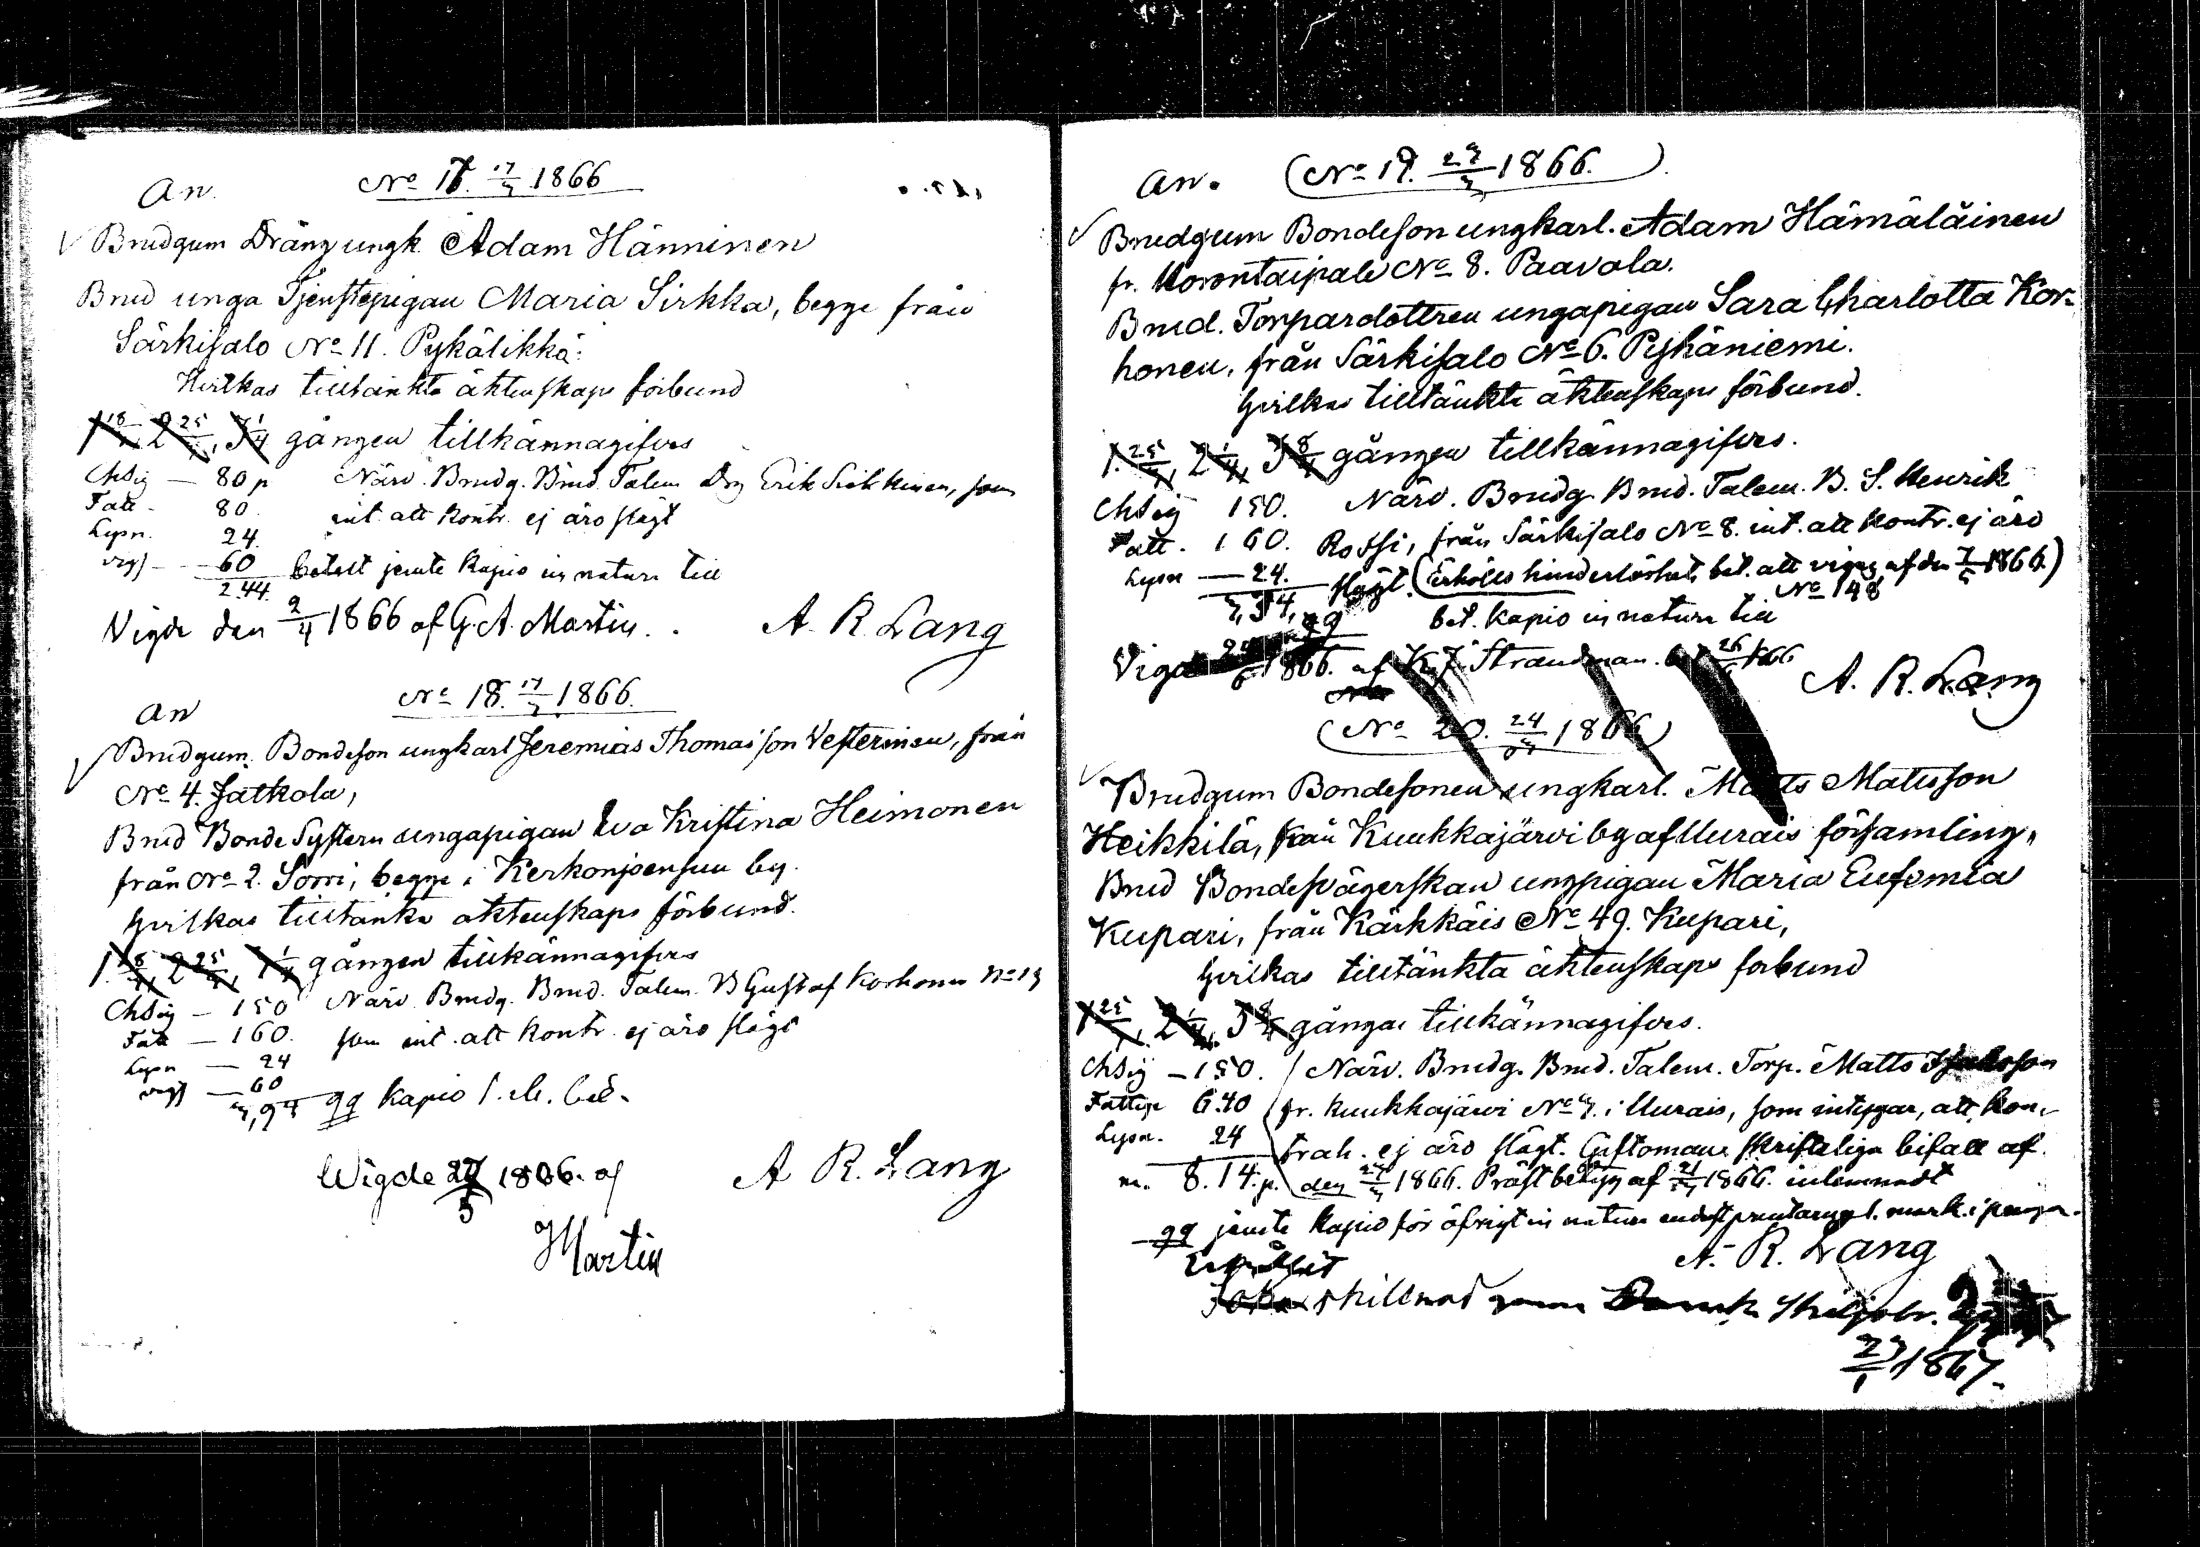 An. No 17. 17/3 1866
Brudgum Dräng ungk. Adam Hänninen
Brud unga Tjenstepigan Maria Sirkka, begge från
Särkisalo No 11. Pykälikkä:
Hvilkas tilltänkta äktenskaps förbund
1 18/3, 2 25/3, 3 1/4 gången tillkännagifves
80 p Närv. Brudg. Brud. Talem. Drg Erik, som
Fatt. 80. int. att kontr. ej äro slägt
Lysn. 24.
vigs — 60 betalt jemte kapio in natura till
2.44.
Vigde den 2/4 1866 af G. A. Martin. A. R. Lang
An No 18. 17/3 1866.
Brudgum. Bondeson ungkarl Jeremias Thomasson Vesterinen, från
No 4. Jatkola,
Brud Bonde Systern ungapigan Eva Kristina Heimonen
från No 2. Sorri, begge i Kerkonjoensuu by.
Hvilkas tilltänkta äktenskaps förbund.
1. 18/3, 2 25/3, 3 1/4 gången tillkännagifves
— 150 Närv. Brudg. Brud. Talem. B Gustaf Korhonen No 13
Fatt — 160. som int. att kontr. ej äro slägt
Lysn — 24
vigs — 60
3,94 gg kapio
Wigde 27/5 1866. af A R. Lang
Martin
An. (No 19. 23/3 1866.)
Brudgum Bondeson ungkarl. Adam Hämäläinen
fr. Korontaipale No 8. Paavola.
Brud. Torpardottren ungapigan Sara Charlotta Kor-
honen, från Särkisalo No 6. Pyhäniemi.
Hvilkas tilltänkta äktenskaps förbund.
1. 25/3, 2 1/4, 3 8/4 gången tillkännagifves.
150. Närv. Brudg. Brud. Talem. B. S. Henrik
Fatt. 160. Rossi, från Särkisalo No 8. int. att kontr. ej äro
Lysn — 24. slägt. (Erhölls hinderlöshets bet. att vigas af den 7/5 1866.)
3,34, gg No 148
bet. kapio in natura till
Vigde 1866. af K. J. Strandman. 26/ 1866
A. R. Lang
(No 20. 24/3 1866)
Brudgum Bondesonen ungkarl. Matts Matsson
Heikkilä, från Kuukkajärvi by af Urais församling,
Brud Bondesvägerskan ungpigan Maria Eufemia
Kupari, från Kärkkäis No 49. Kupari,
Hvilkas tilltänkta äktenskaps forbund
1 25/3, 2 1/4, 3 8/4 gången tillkännagifves.
— 150. Närv. Brudg. Brud. Talem. Torp. Matts
Fattige 6.40 fr. Kuukkajärvi No 3. i Urais, som intygar, att kon-
Lysn. 24 trah. ej äro slägt. Giftomans skriftliga bifall af
m. 8. 14. p. den 23/3 1866. Präst betyg af 21/3 1866. inlemnadt
gg jemte kapio för öfrigt in natura endast mark. i
A. R. Lang
Erhållit
skillnad genom
23/1 1867.